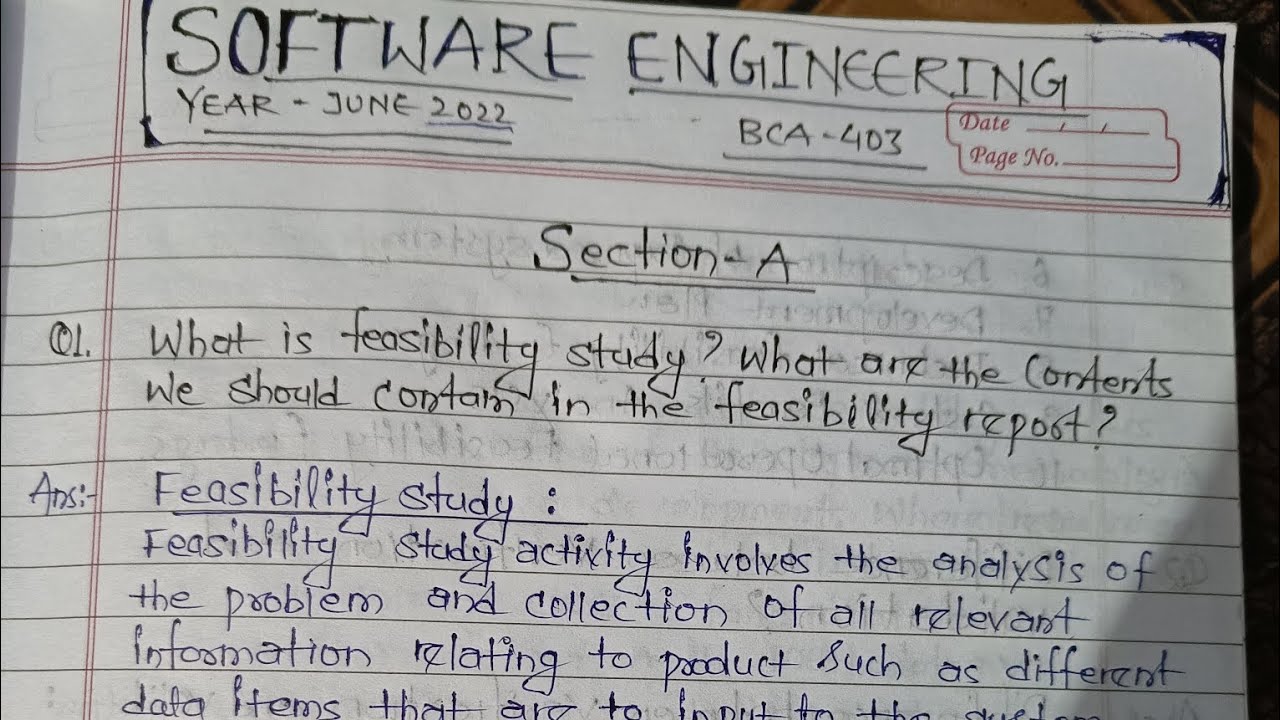 SOFTWARE ENGINEERING
YEAR - JUNE 2022
BCA-403
Date / /
Page No.
Section-A
Q1. What is feasibility study? What are the Contents
We should contain in the feasibility report?
Ans:- Feasibility study :
Feasibility study activity involves the analysis of
the problem and collection of all relevant
information relating to product such as different
data items that are to input to the system